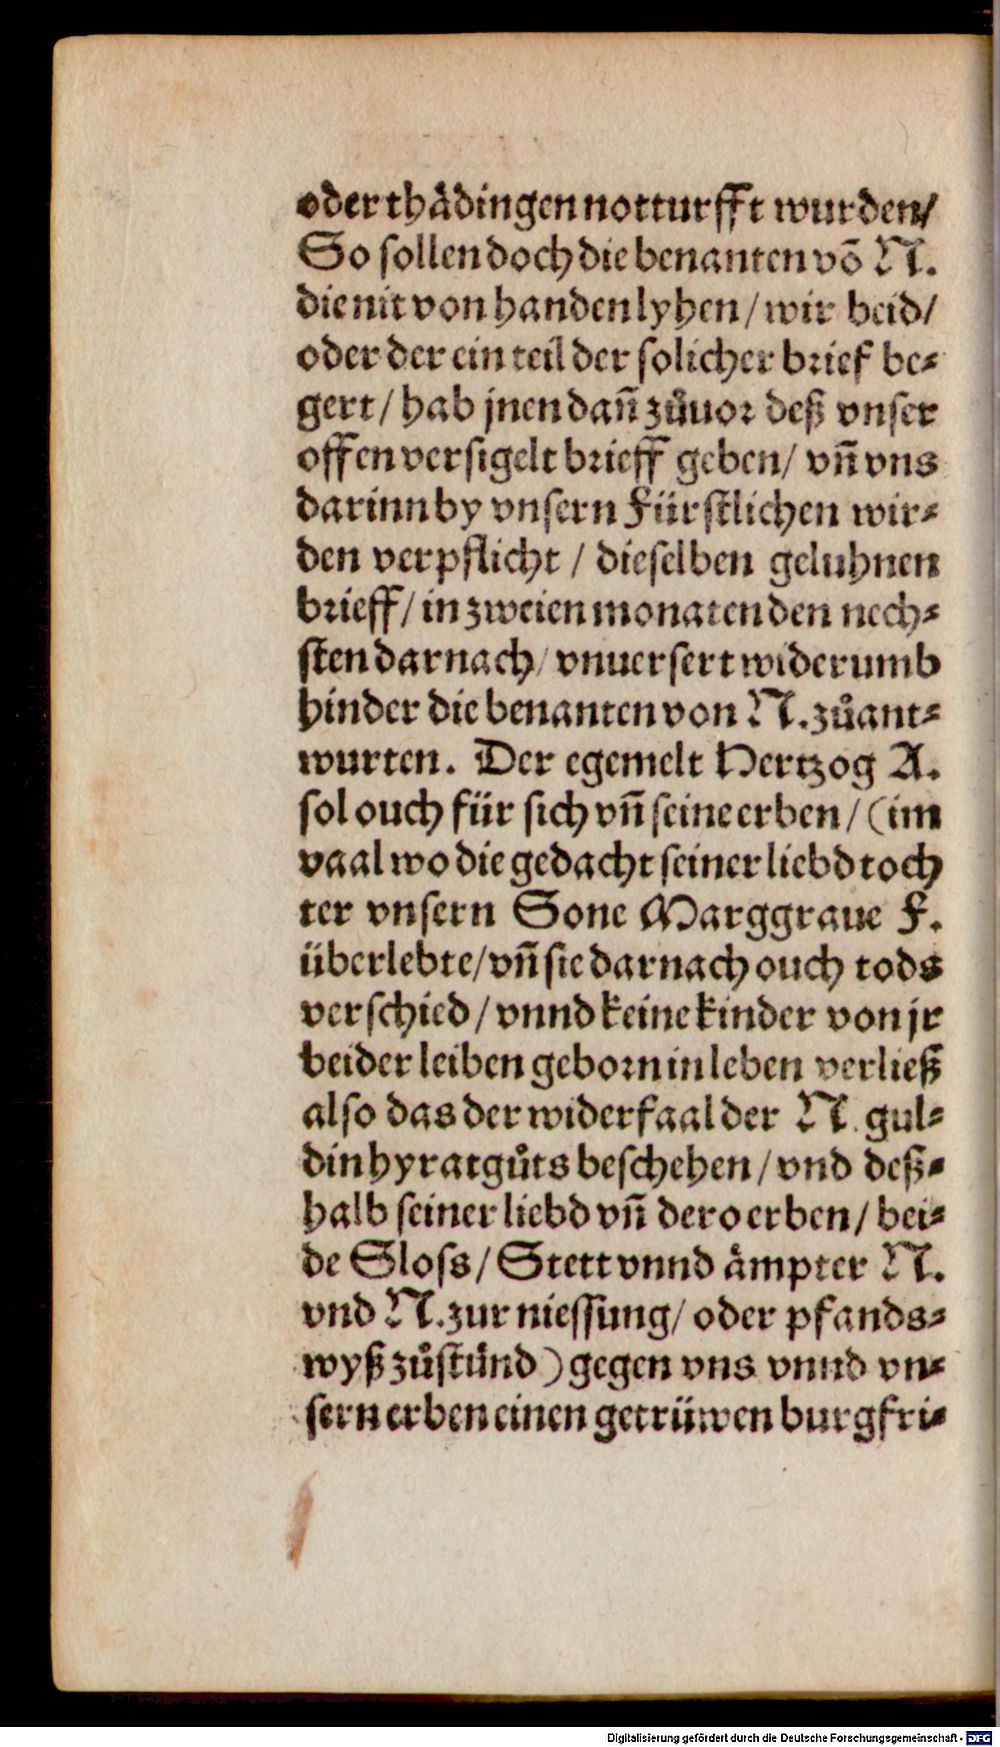 oder thådingen notturfft wurden/
So sollen doch die benanten võ N.
die nit von handen lyhen/ wir beid/
oder der ein teil der solicher brief be⸗
gert/ hab jnen dañ zůuor deß vnser
offen versigelt brieff geben/ vñ vns
darinn by vnsern Fürstlichen wir⸗
den verpflicht / dieselben geluhnen
brieff/ in zweien monaten den nech⸗
sten darnach/ vnuersert widerumb
hinder die benanten von N. zůant⸗
wurten. Der egemelt Hertzog A.
sol ouch für sich vñ seine erben/ (im
vaal wo die gedacht seiner liebd toch
ter vnsern Sone Marggraue F.
überlebte/ vñ sie darnach ouch tods
verschied/ vnnd keine kinder von jr
beider leiben geborn in leben verließ
also das der widerfaal der N. gul⸗
din hyratgůts beschehen/ vnd deß⸗
halb seiner liebd vñ dero erben/ bei⸗
de Sloss/ Stett vnnd åmpter N.
vnd N. zur niessung/ oder pfands⸗
wyß zůstünd) gegen vns vnnd vn⸗
sern erben einen getrüwen burgfri⸗
Digitalisierung gefördert durch die Deutsche Forschungsgemeinschaft - DFG